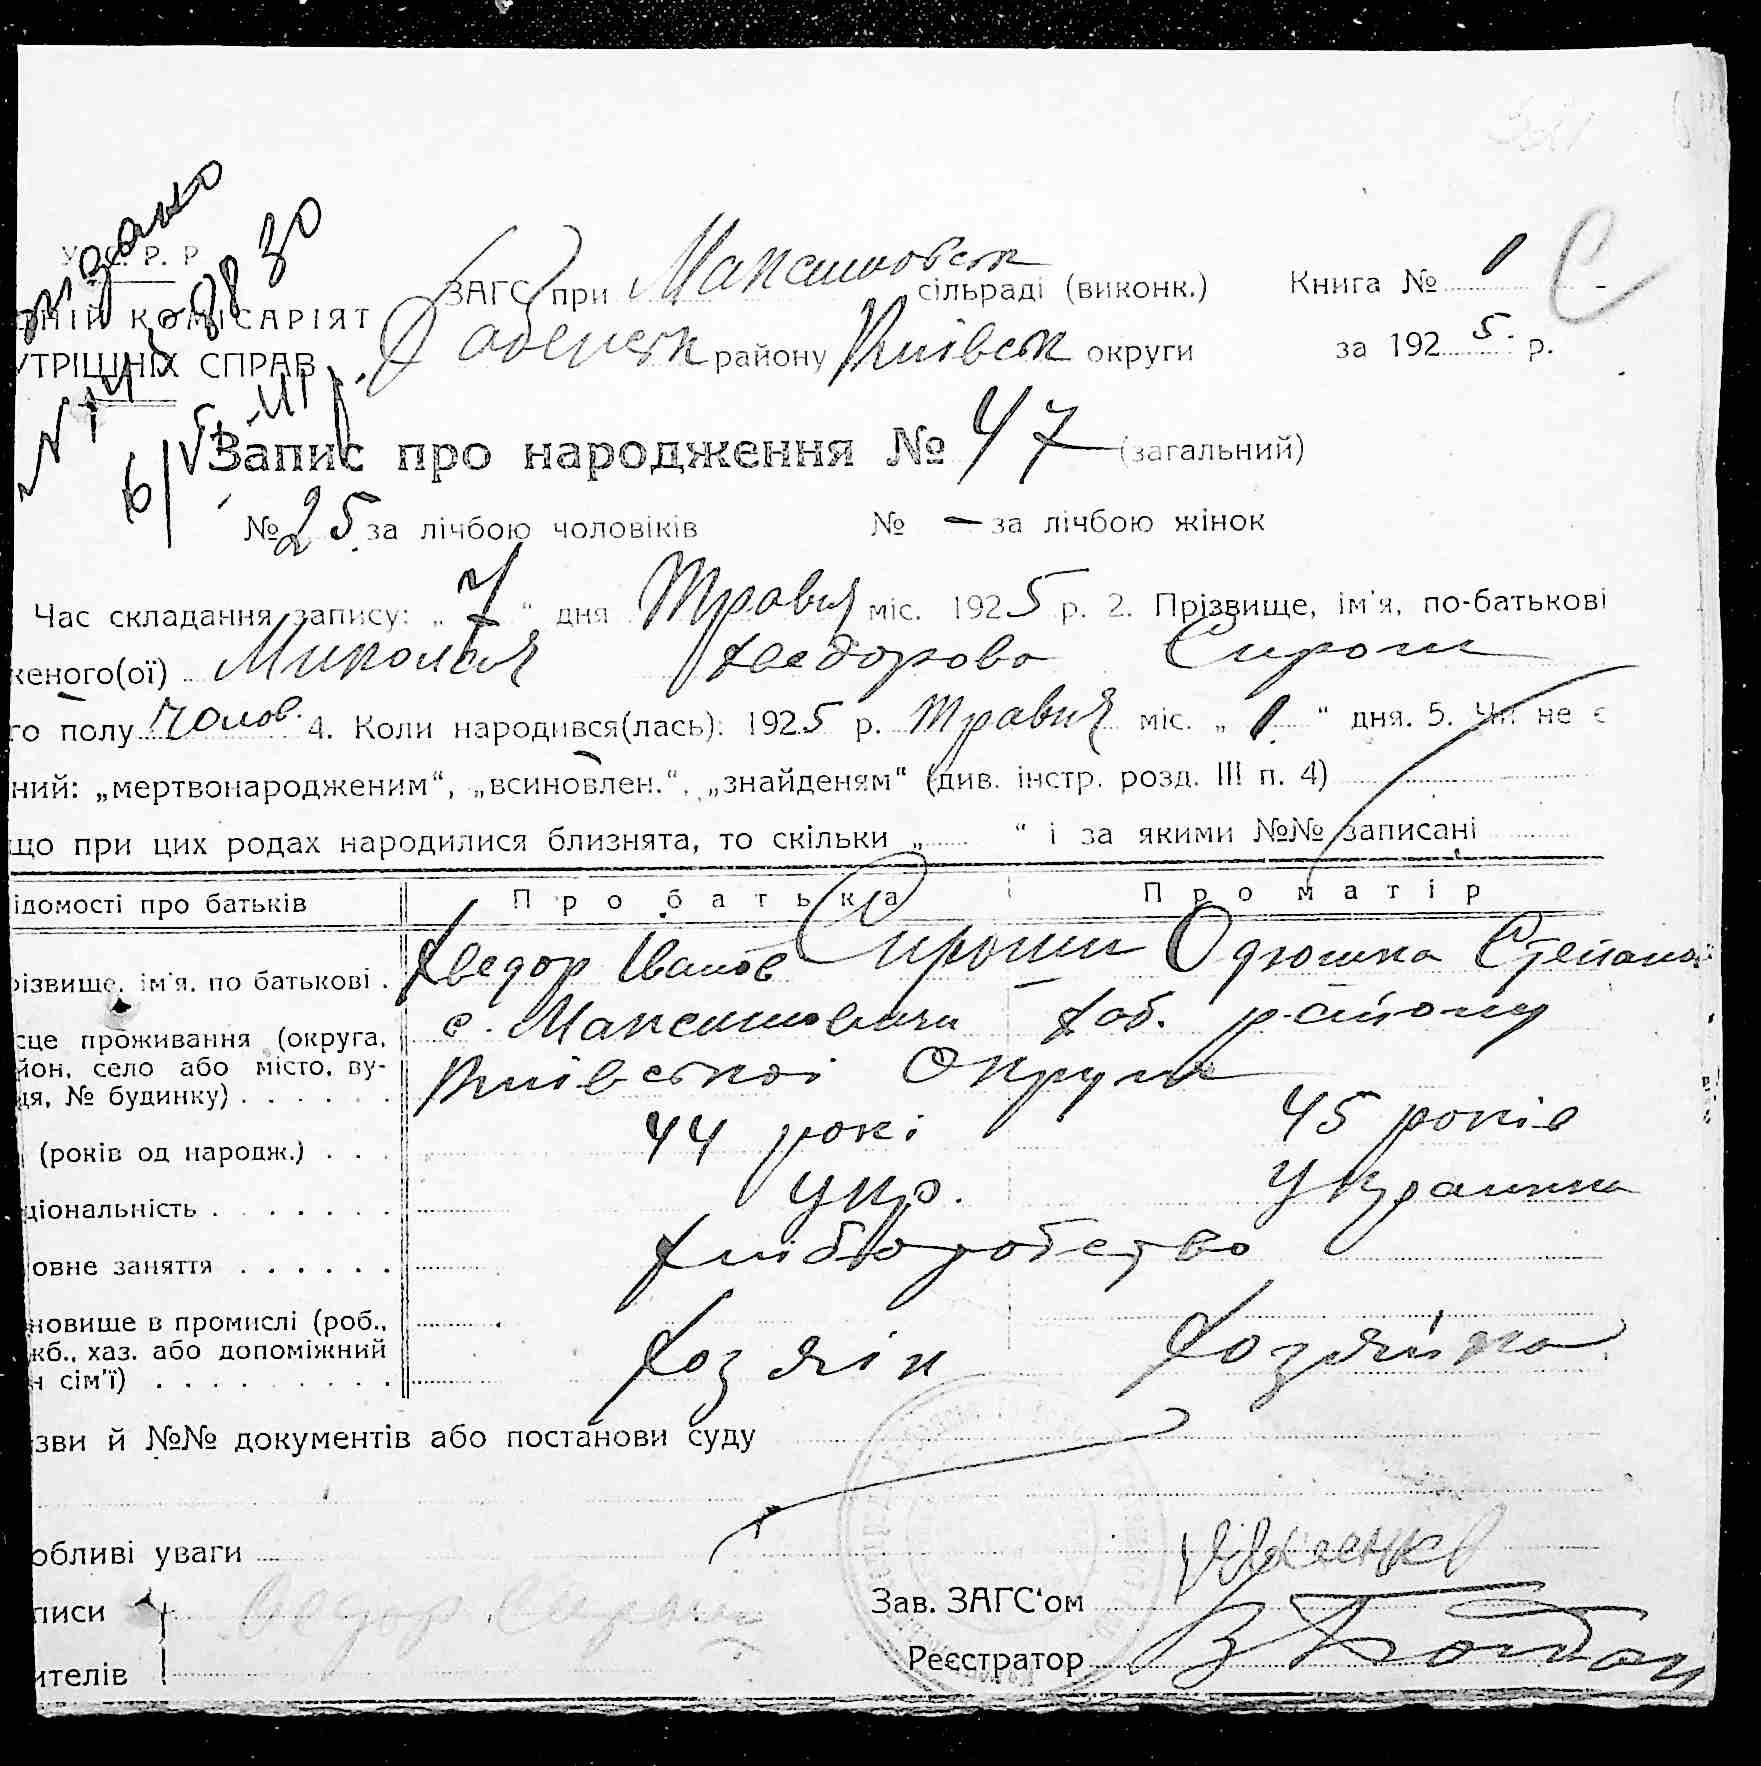 видано
28 30
У. С. Р. Р.
ЗАГС при Максимовск сільраді (виконк.) Книга № 1 С
НІЙ КОМІСАРІЯТ
району Київск округи за 1925 р.
УТРІШНІХ СПРАВ
№ 14
6/V
Запис про народження № 47 (загальний)
№ 25 за лічбою чоловіків № — за лічбою жінок
Час складання запису: „7“ дня Травня міс. 1925 р. 2. Прізвище, ім'я, по-батькові
женого(ої) Миколай Хведорово Сирош
го полу Чолов. 4. Коли народився(лась): 1925 р. Травня міс. „1“ дня. 5. Чи не є
ний: „мертвонародженим“, „всиновлен.“, „знайденям“ (див. інстр. розд. III п. 4)
що при цих родах народилися близнята, то скільки „ “ і за якими №№ записані
ідомості про батьків Про батька Про матір
різвище, ім'я, по батькові . Хведор Іванов Сирош Одюшка Степано
сце проживання (округа, с. Максимовичи Хаб. району
йон, село або місто, ву- Київської Округи
ця, № будинку) . . . . . .
(років од народж.) . . . 44 рокі 45 років
ціональність . . . . . . . укр. Українка
овне заняття . . . . . . Хліборобство
новище в промислі (роб.,
жб., хаз. або допоміжний Хозяін Хозяйка
н сім'ї) . . . . . . . . .
зви й №№ документів або постанови суду
обливі уваги
писи Хведор Сирош Зав. ЗАГС'ом
ителів Реєстратор